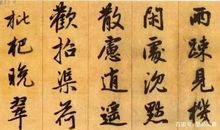 兩疎見機
閑處沈默
散慮逍遙
歡招渠荷
枇杷晚翠